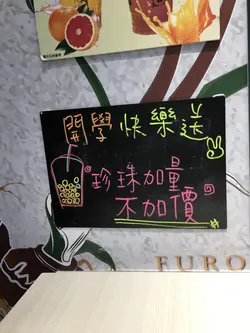 開學快樂送
珍珠加量
不加價
EURO